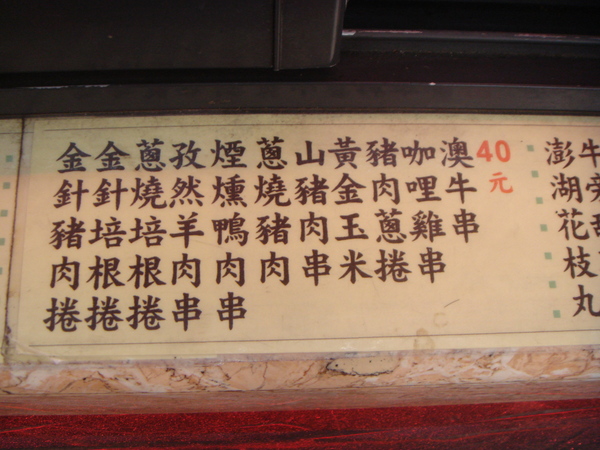 牛
澎湖花枝丸
40元
澳牛串
咖哩雞串
豬肉蔥捲
黃金玉米
山豬肉串
蔥燒豬肉
煙燻鴨肉串
孜然羊肉串
蔥燒培根捲
金針培根捲
金針豬肉捲